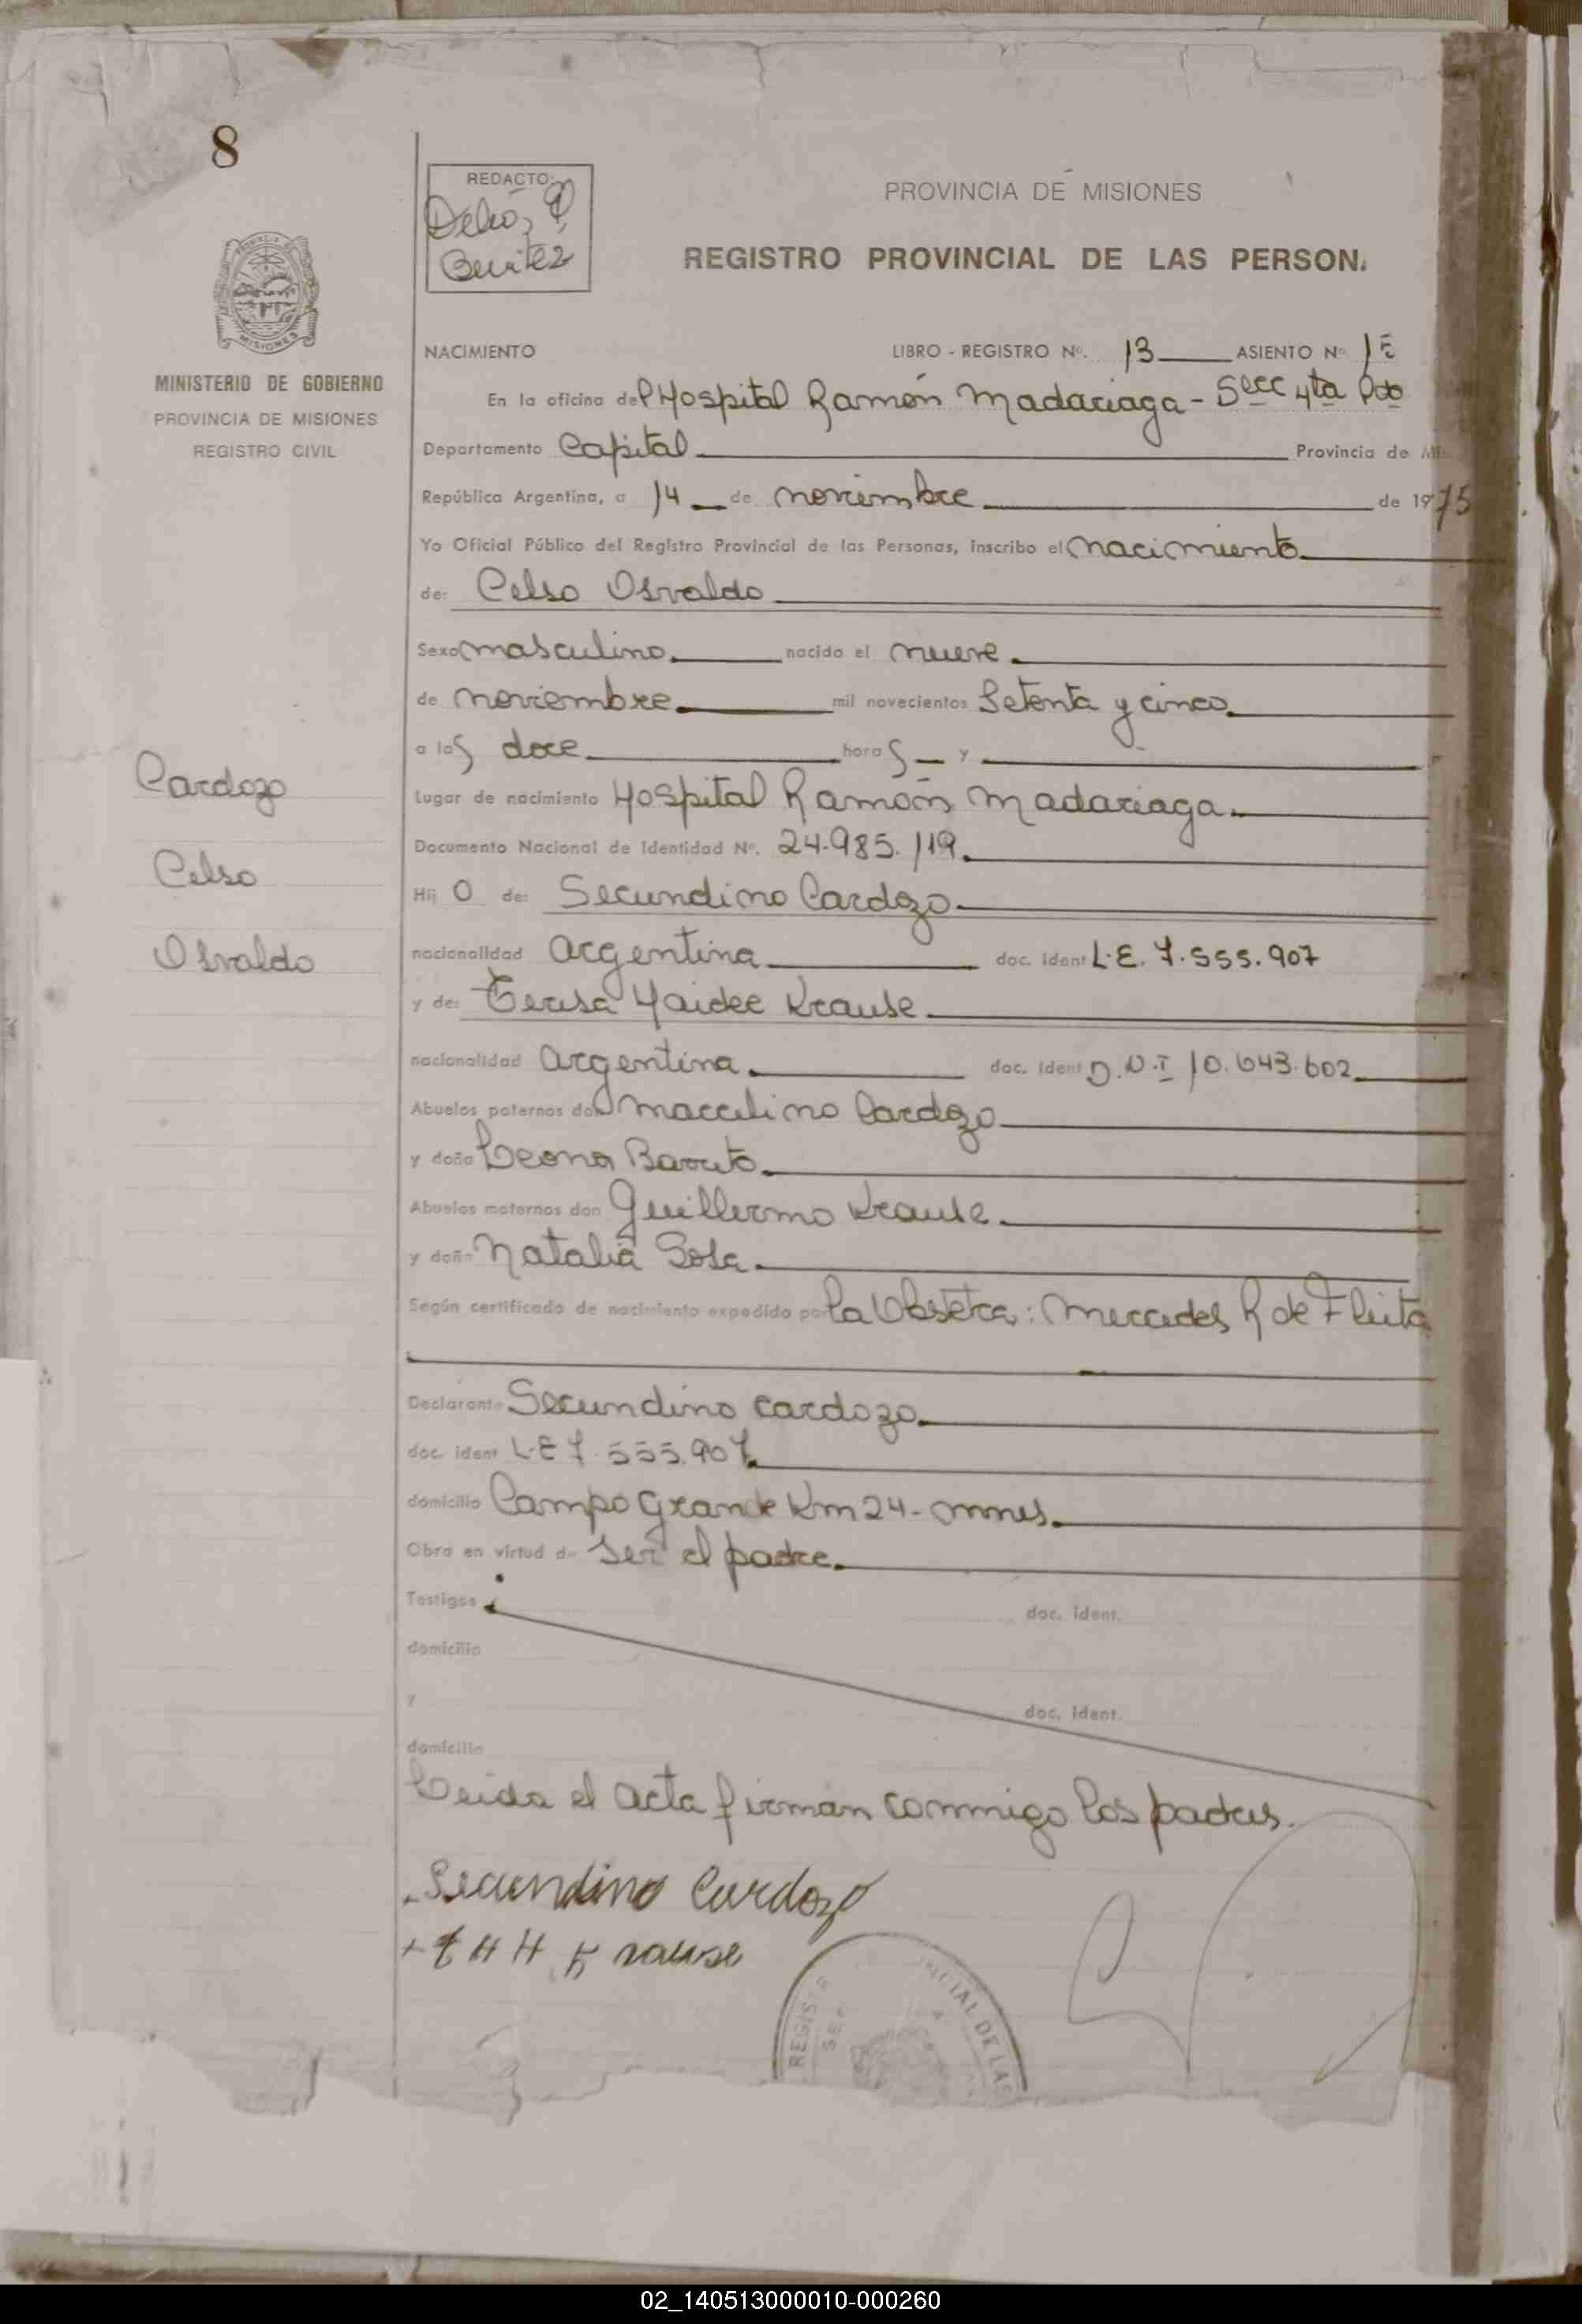 8
REDACTO:
Benitez
PROVINCIA DE MISIONES
REGISTRO PROVINCIAL DE LAS PERSON
MISIONES
MINISTERIO DE GOBIERNO
PROVINCIA DE MISIONES
REGISTRO CIVIL
NACIMIENTO LIBRO - REGISTRO Nº. 13 ASIENTO Nº
En la oficina del Hospital Ramón Madariaga - Secc 4ta Pdo
Departamento Capital Provincia de
República Argentina, a 14 de noviembre de 1975
Yo Oficial Público del Registro Provincial de las Personas, inscribo el nacimiento
de: Celso Osvaldo
Sexo masculino. nacido el nueve.
de noviembre. mil novecientos Setenta y cinco.
a las doce hora s y
Cardozo
Celso
Osvaldo
Lugar de nacimiento Hospital Ramón Madariaga.
Documento Nacional de Identidad Nº. 24.985.119.
Hij o de: Secundino Cardozo.
nacionalidad argentina. doc. ident L.E. 7.555.907
y de: Teresa Haidee Krause.
nacionalidad argentina. doc. ident D.N.I 10.643.602.
Abuelos paternos don Marcelino Cardozo
y doña Leona Barreto.
Abuelos maternos don Guillermo Krause.
y doña Natalia Sosa.
Según certificado de nacimiento expedido por la Obstetra: Mercedes R de Fleita
Declarante Secundino Cardozo.
doc. ident L.E 7.555.907.
domicilio Campo Grande Km 24 - mnes.
Obra en virtud de Ser el padre.
Testigos doc. ident.
domicilio
y doc. ident.
domicilio
Leida el acta firman conmigo los padres.
Secundino Cardozo
T H H Krause
02_140513000010-000260